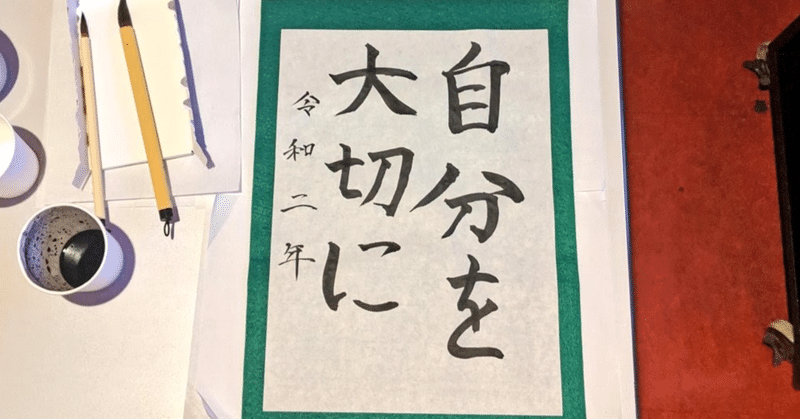 自分を
大切に
令和二年